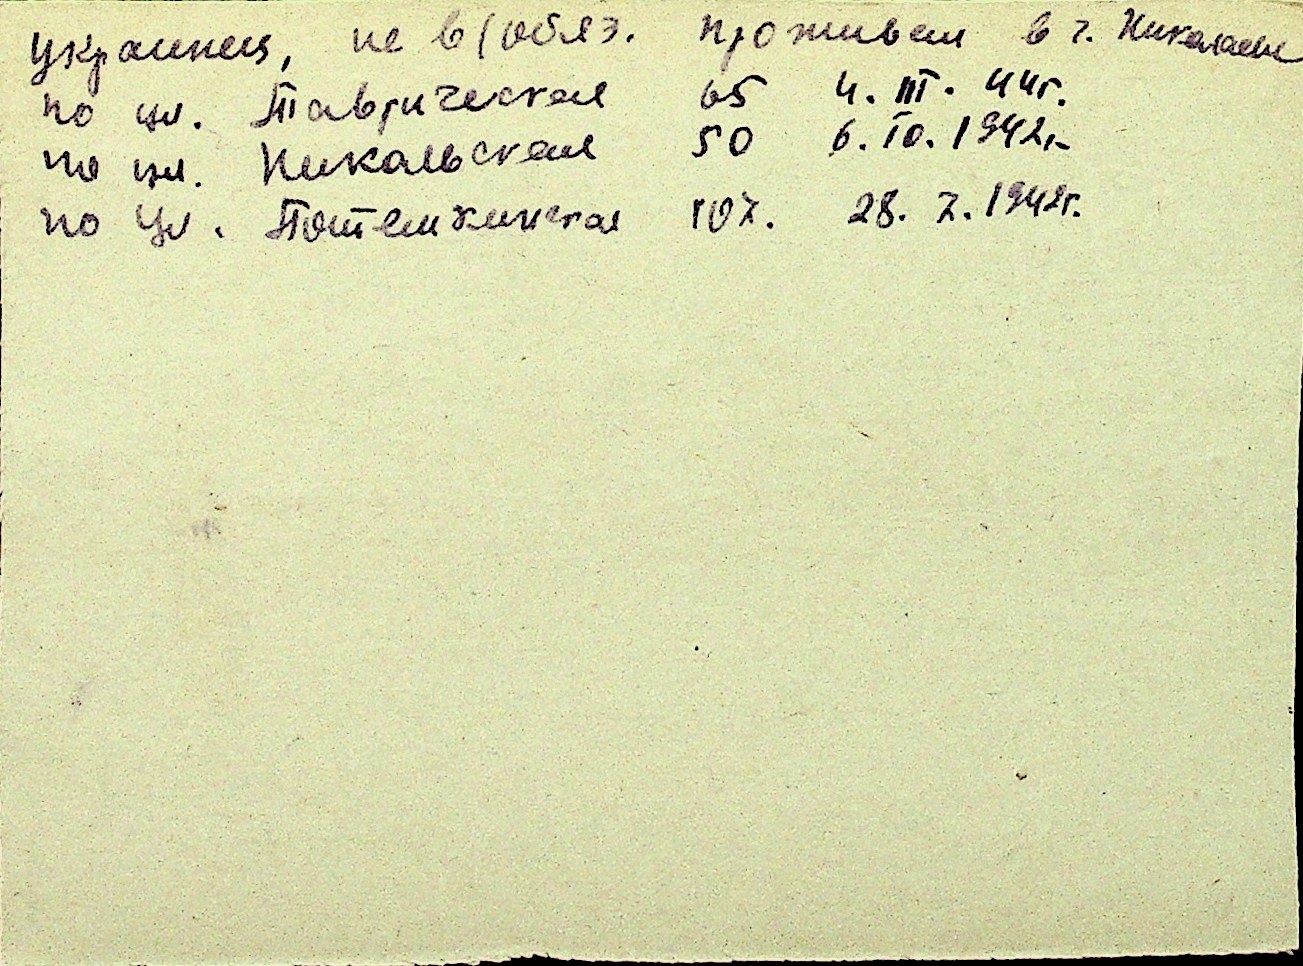 украинец, не в/обяз. проживал в г. Николаеве
по ул. Таврическая 65 4. III. 44г.
по ул. Никольская 50 6. IV. 1942г.
по ул. Потемкинская 107. 28. 7. 1942г.